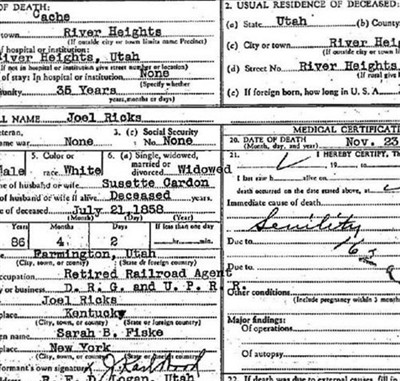 OF DEATH:
Cache
2. USUAL RESIDENCE OF DECEASED:
(a) State Utah (b) County
town River Heights
(If outside city or town limits name Precinct)
(c) City or town River Hei
of hospital or institution:
River Heights, Utah
(If not in hospital or institution give street number or location)
(d) Street No. River Heights
of stay: In hospital or institution None
(Specify whether
unity 35 Years
years, months or days)
(e) If foreign born, how long in U. S. A.
LL NAME Joel Ricks
eteran, 3. (c) Social Security
me war None No. None
MEDICAL CERTIFICAT
20. DATE OF DEATH Nov. 23
(Month, day, and year)
5. Color or 6. (a) Single, widowed, married or
Male race White divorced Widowed
21. I HEREBY CERTIFY, Th
I last saw h alive on
me of husband or wife Susette Cardon
death occurred on the date stated above, at
of husband or wife if alive Deceased years.
Immediate cause of death
te of deceased July 21, 1858
(Month) (Day) (Year)
Senility
Years Months Days If less than one day
86 4 2 hr. min.
Due to
Farmington, Utah
(City, town, or county) (State or foreign country)
Due to
ccupation Retired Railroad Agent
y or business D. R. G. and U. P. R. R.
Other conditions
(Include pregnancy within 3 month
Joel Ricks
place Kentucky
(City, town, or county) (State or foreign country)
Major findings:
Of operations
Sarah B. Fiske
place New York
(City, town, or county) (State or foreign country)
Of autopsy
formant's own signature
R. F. D. Logan, Utah
22. If death was due to external causes, fill in